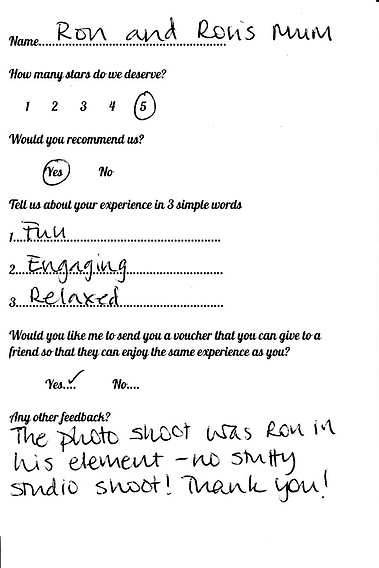 Name.......Ron and Ron's Mum
How many stars do we deserve?
1 2 3 4 5
Would you recommend us?
Yes No
Tell us about your experience in 3 simple words
1. Fun
2. Engaging
3. Relaxed
Would you like me to send you a voucher that you can give to a
friend so that they can enjoy the same experience as you?
Yes....✓ No....
Any other feedback?
The photo shoot was Ron in
his element - no stuffy
studio shoot! Thank you!